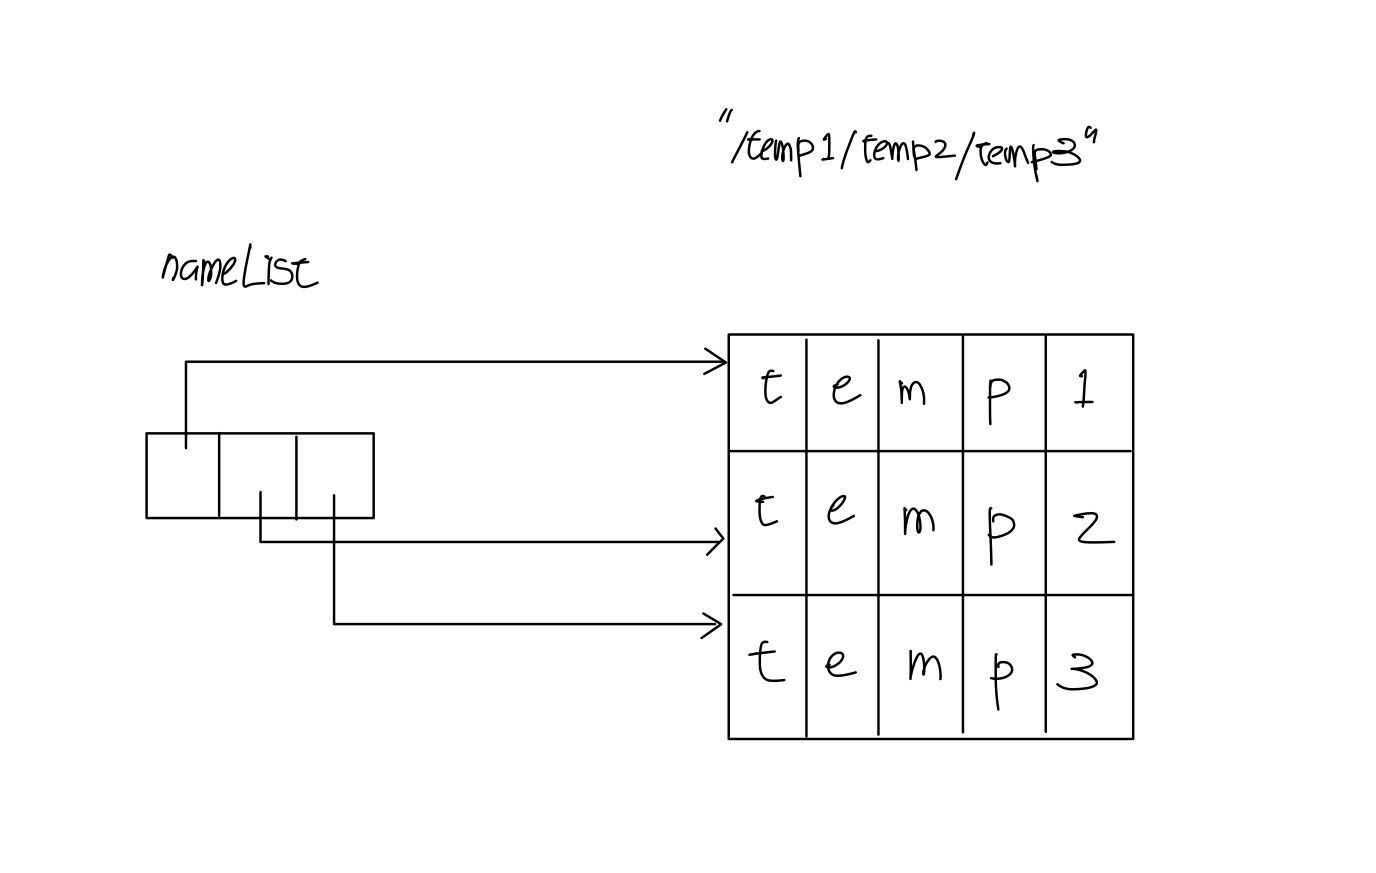 "/temp1/temp2/temp3"
nameList
t e m p 1
t e m p 2
t e m p 3